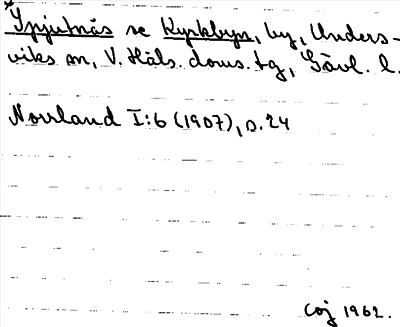 Spjutnäs se Kyrkbyn, by, Unders-
viks sn, V. Häls. doms. tg, Gävl. l.
Norrland I:6 (1907), s. 24
Coj 1962.